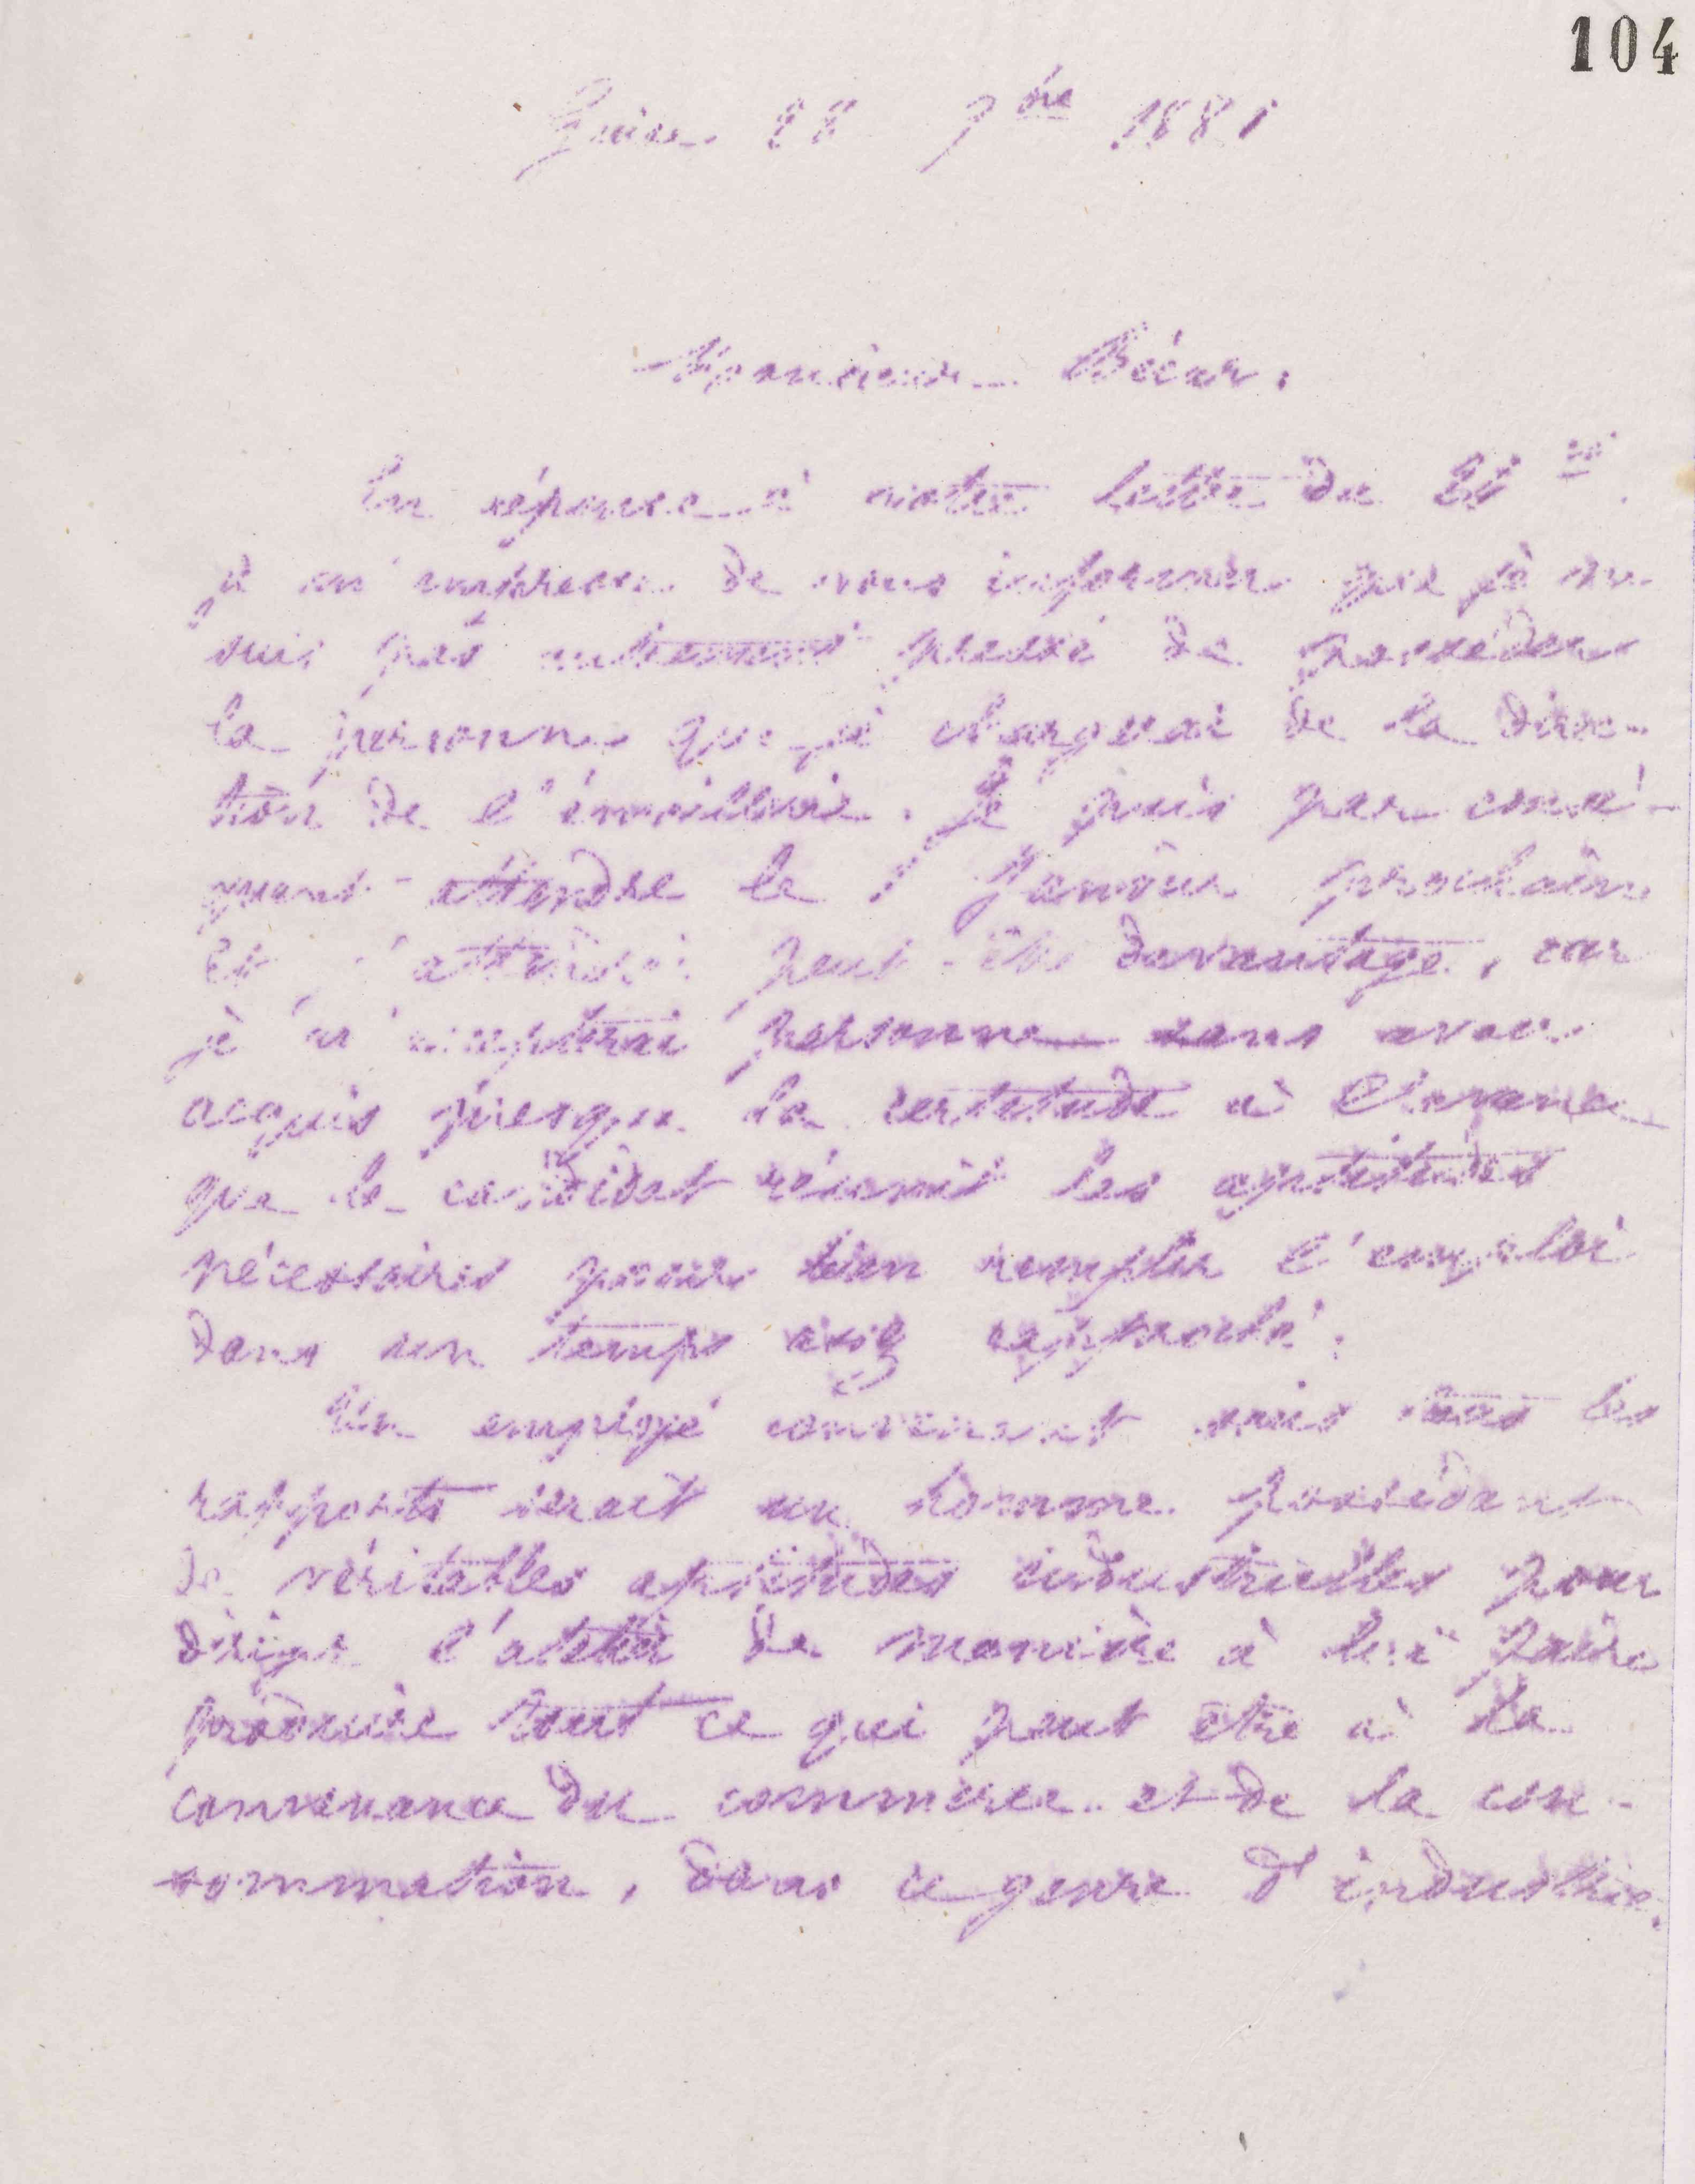 104
Guise 28 7bre 1881
Monsieur Bécar.
En réponse à votre lettre du 25
je m'empresse de vous informer que je ne
suis pas autrement pressé de posséder
la personne que je chargerai de la direc-
tion de l'émaillerie. Je puis par consé-
quent attendre le 1er Janvier prochain
Et j'attendrai peut-être davantage, car
je n'accepterai personne sans avoir
acquis presque la certitude à l'avance
que le candidat réunit les aptitudes
nécessaires pour bien remplir l'emploi
dans un temps assez rapproché.
Un employé convenant sous tous les
rapports serait un homme possédant
de véritables aptitudes industrielles pour
diriger l'atelier de manière à lui faire
produire tout ce qui peut être à la
convenance du commerce et de la con-
sommation, dans ce genre d'industrie.